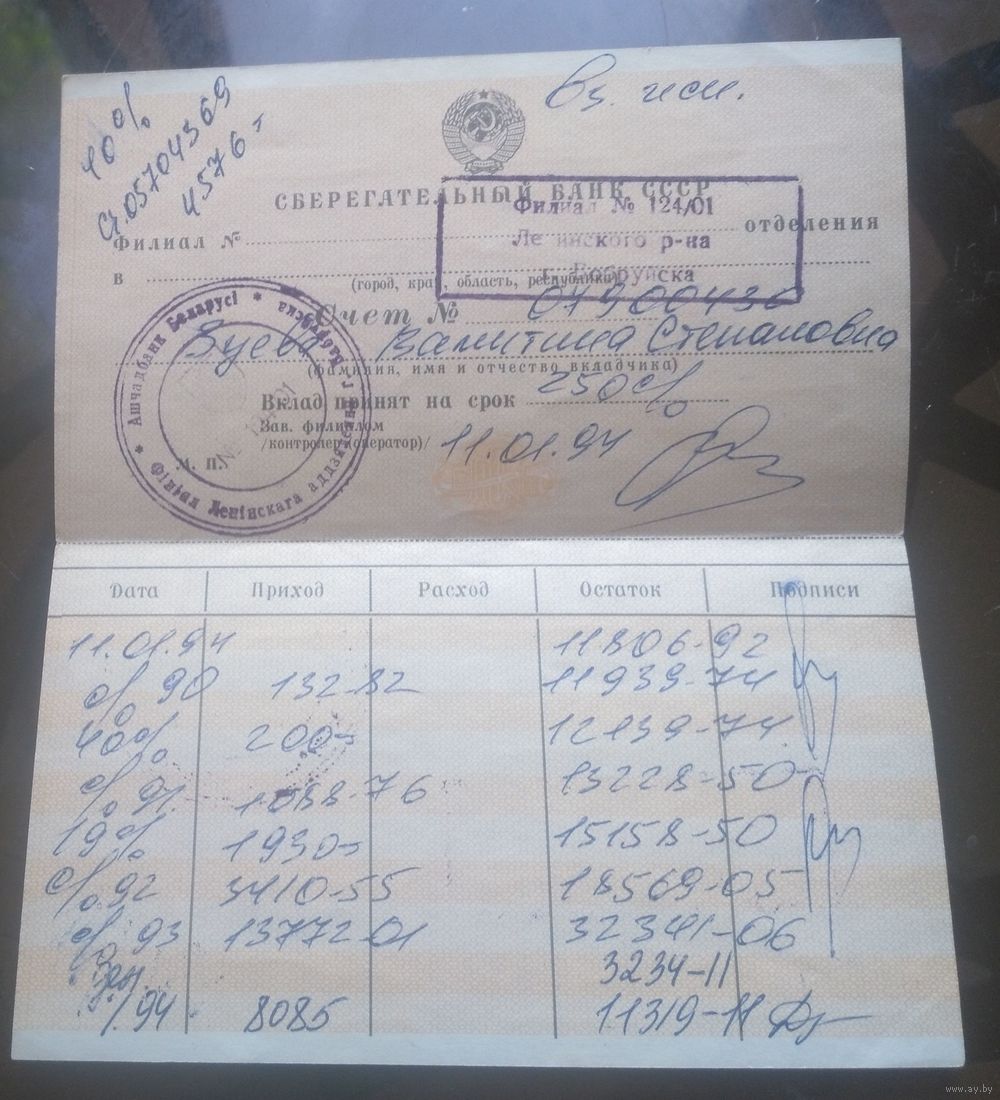 40%
Сч.05704369
4576-
Вз. исп.
СБЕРЕГАТЕЛЬНЫЙ БАНК СССР
Филиал № 124/01
Ленинского р-на
г. Бобруйска
Филиал № отделения
в
(город, край, область, республика)
Счет № 07900436
Зуева Валентина Степановна
(фамилия, имя и отчество вкладчика)
Вклад принят на срок 250%
Зав. филиалом
/контролер (оператор)/ 11.01.94
М. П.
* Ашчадбанк Беларусі * г. Бабруйска
Філіял Ленінскага аддзялення
Дата Приход Расход Остаток Подписи
11.01.94 11806-92
% 90 132-82 11939-74
40% 200- 12139-74
% 91 1088-76 13228-50
19% 1930- 15158-50
% 92 3410-55 18569-05
% 93 13772-01 32341-06
3234-11
1.94 8085 11319-11
www.ay.by